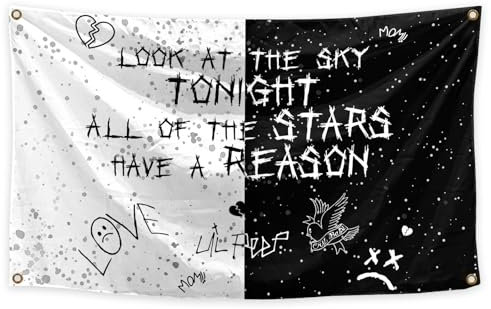 Mom
LOOK AT THE SKY
TONIGHT
ALL OF THE STARS
HAVE A REASON
LOVE
LiL PEEP
CRY BABY
Mom